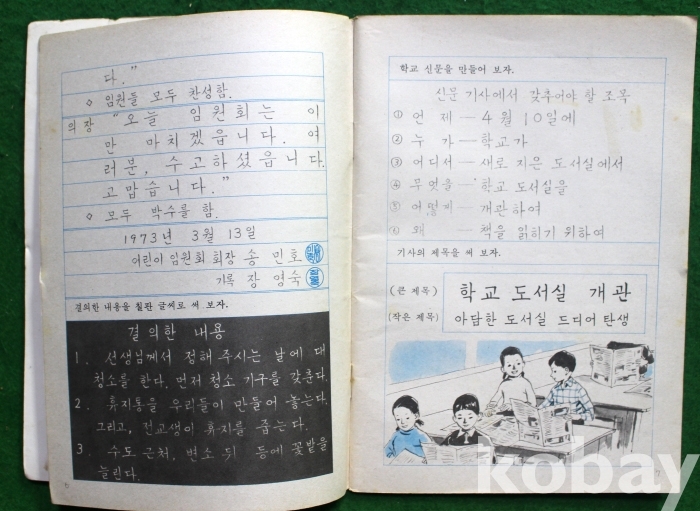 다."
◇ 임원들 모두 찬성함.
의장 "오늘 임원회는 이
만 마치겠읍니다. 여
러분, 수고하셨읍니다.
고맙습니다."
◇ 모두 박수를 함.
1973년 3월 13일
어린이 임원회 회장 송 민호
기록 장 영숙
결의한 내용을 칠판 글씨로 써 보자.
결의한 내용
1. 선생님께서 정해 주시는 날에 대
청소를 한다. 먼저 청소 기구를 갖춘다.
2. 휴지통을 우리들이 만들어 놓는다.
그리고, 전교생이 휴지를 줍는다.
3. 수도 근처, 변소 뒤 등에 꽃밭을
늘린다.
학교 신문을 만들어 보자.
신문 기사에서 갖추어야 할 조목
① 언제 — 4월 10일에
② 누가 — 학교가
③ 어디서 — 새로 지은 도서실에서
④ 무엇을 — 학교 도서실을
⑤ 어떻게 — 개관하여
⑥ 왜 — 책을 읽히기 위하여
기사의 제목을 써 보자.
(큰 제목) 학교 도서실 개관
(작은 제목) 아담한 도서실 드디어 탄생
kobay